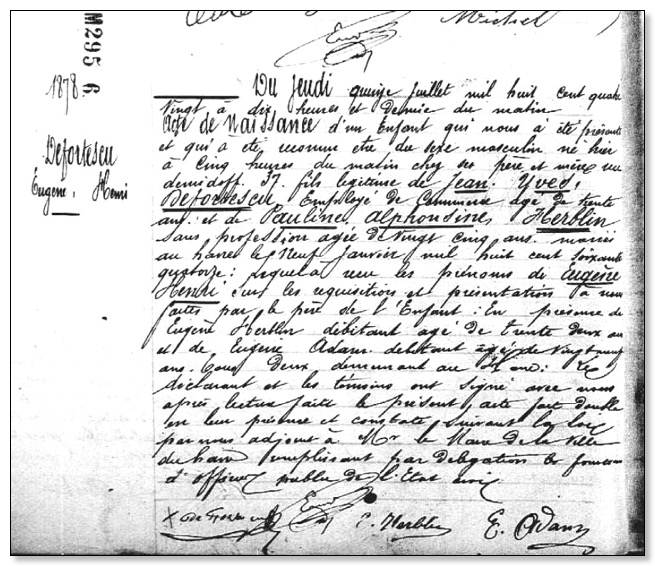 Michel
M295 6
1878
Defortescu
Eugène. Henri
Du Jeudi quinze Juillet mil huit cent quatre
Vingt à dix heures et Demie du matin
Acte de Naissance d'un Enfant qui nous a été présenté
et qui a été reconnu être du sexe masculin né hier
à Cinq heures du matin chez ses père et mère rue
demidoff. 37. fils légitime de Jean. Yves.
Defortescu, Employé de Commerce agé de trente
ans. et de Pauline, Alphonsine, Herblin
sans profession agée de Vingt Cinq ans. mariés
au havre le Neuf Janvier mil huit cent soixante
quatorze: lequel a reçu les prénoms de Eugène
Henri sur les requisitions et présentation à nous
faites par le père de l'Enfant: En présence de
Eugène Herblin débitant agé de trente deux ans
et de Eugène Adam. debitant agé de Vingt neuf
ans. tous Deux demeurant au Havre: Le
déclarant et les témoins ont signé avec nous
après lecture faite le présent acte fait double
en leur présence et constaté suivant la loi
par nous adjoint à Mr le Maire de la Ville
du havre remplissant par délégation les fonctions
d'officier public de l'Etat civil
E. Herblin
E. Adam